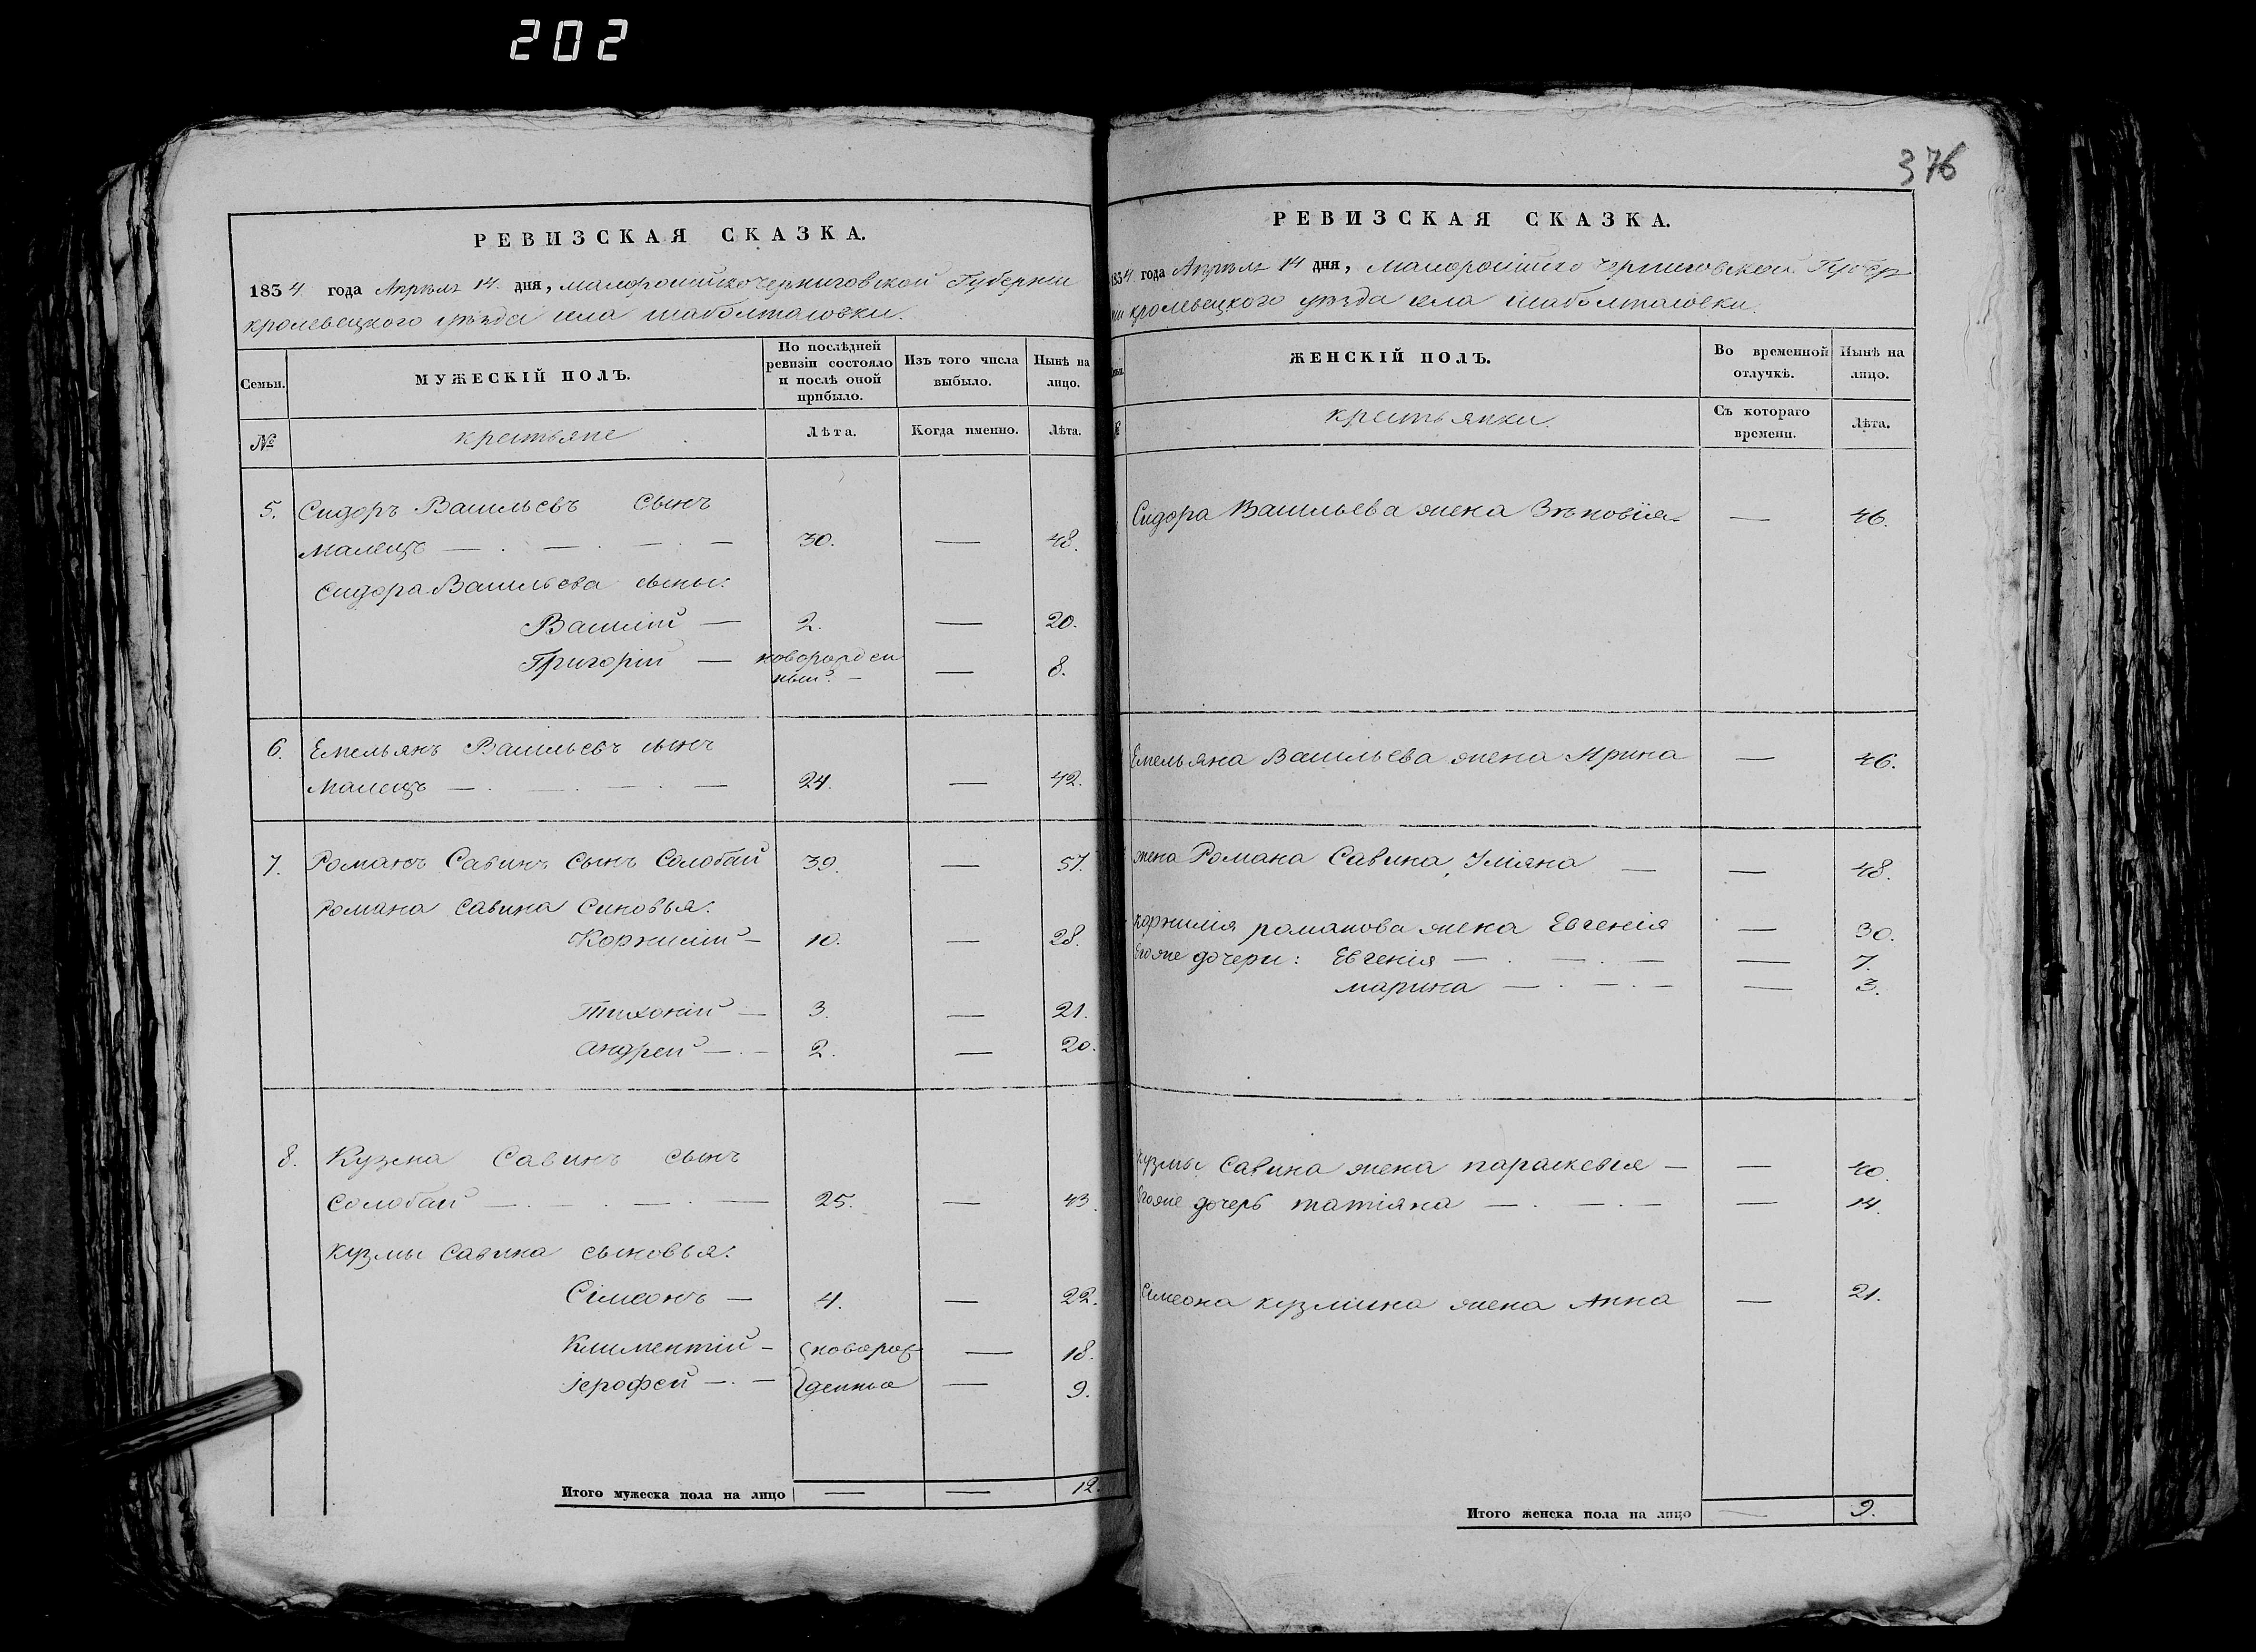 202
376
РЕВИЗСКАЯ СКАЗКА.
1834 года Апрѣля 14. дня, малоросийскочерниговской Губернии
кролевецкого уѣзда села шаболтасовки.
Семьи.
МУЖЕСКІЙ ПОЛЪ.
По послѣдней ревизіи состояло и послѣ оной прибыло.
Изъ того числа выбыло.
Нынѣ на лицо.
№
крестьяне
Лѣта.
Когда именно.
Лѣта.
5. Сидоръ Васильевъ сынъ
Малецъ — . — . — . — 30. — 48.
Сидора Васильева сыны:
Василій — 2. — 20.
Григорій — новорожден
ный. — — 8.
6. Емельянъ Васильевъ сынъ
Малецъ — . — . — . — 24. — 42.
7. Романъ Савинъ Сынъ Солобай 39. — 57.
Романа Савина Синовья:
Корнилій — 10. — 28.
Тихоній — 3. — 21.
Андрей — . — 2. — 20.
8. Кузма Савинъ сынъ
Солобай — . — . — . — 25. — 43.
Кузмы Савина сыновья:
Сімеонъ — 4. — 22.
Климентій — новорож — 18.
Іерофей — . — денные — 9.
Итого мужеска пола на лицо — — 12.
РЕВИЗСКАЯ СКАЗКА.
1834 года Апрѣля 14 дня, малоросийско черниговской Губер
нии кролевецкого уѣзда села шаболтасовки.
ЖЕНСКІЙ ПОЛЪ.
Во временной отлучкѣ.
Нынѣ на лицо.
№
крестьянки.
Съ котораго времени.
Лѣта.
Сидора Васильева жена Зѣновія — — 46.
Емельяна Васильева жена Ирина — 46.
жена Романа Савина, Уліяна — — 48.
Корнилія романова жена Евгенія — 30.
Егоже дочери: Евгенія — . — . — — 7.
марина — . — . — — 3.
Кузмы Савина жена параскевія — — 40.
Егоже дочерь татіяна — . — . — — 14.
Сімеона кузмина жена Анна — 21.
Итого женска пола на лицо — 9.